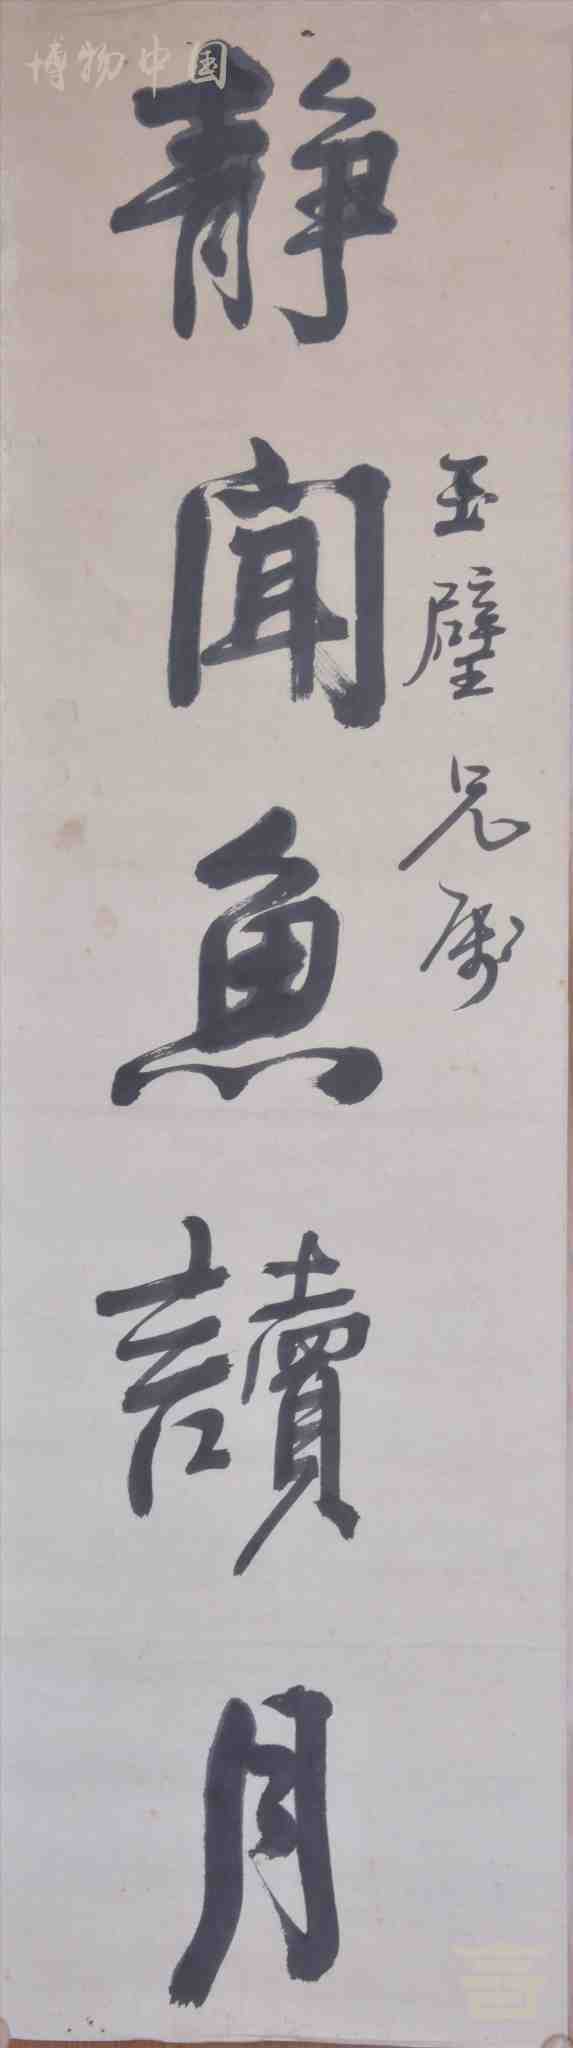 博物中国
玉璧兄属
静闻魚讀月